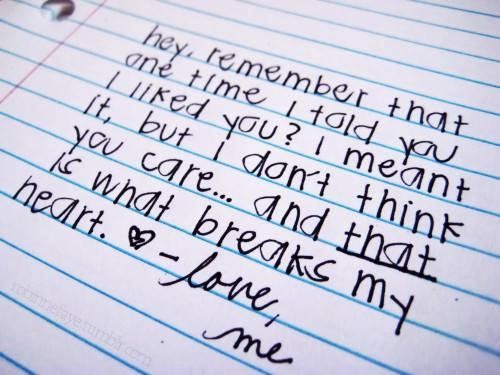 hey, remember that
one time I told you
I liked you? I meant
it, but I don't think
you care... and that
is what breaks my
heart. ♡ - love,
me
robinniefaye.tumblr.com